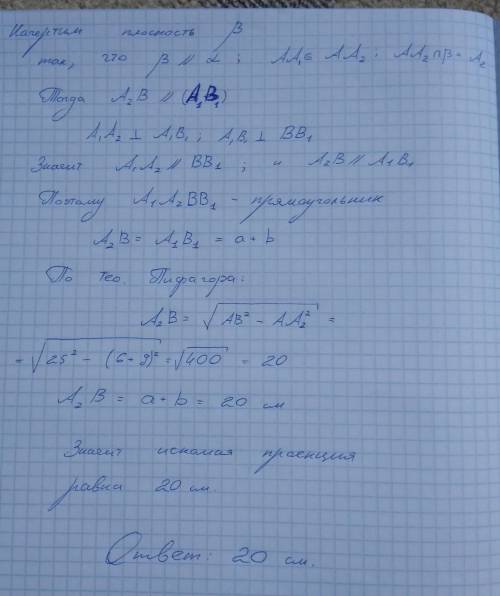 Начертим плоскость β
так, что β ∥ α ; AA₁ ∈ AA₂ ; AA₂ ∩ β = A₂
Тогда A₂B ∥ (A₁B₁)
A₁A₂ ⊥ A₁B₁ ; A₁B₁ ⊥ BB₁
Значит A₁A₂ ∥ BB₁ ; и A₂B ∥ A₁B₁
Поэтому A₁A₂BB₁ - прямоугольник
A₂B = A₁B₁ = a + b
По тео. Пифагора:
A₂B = √(AB² - AA₂²) =
= √(25² - (6+9)²) = √400 = 20
A₂B = a + b = 20 см
Значит искомая проекция
равна 20 см.
Ответ: 20 см.